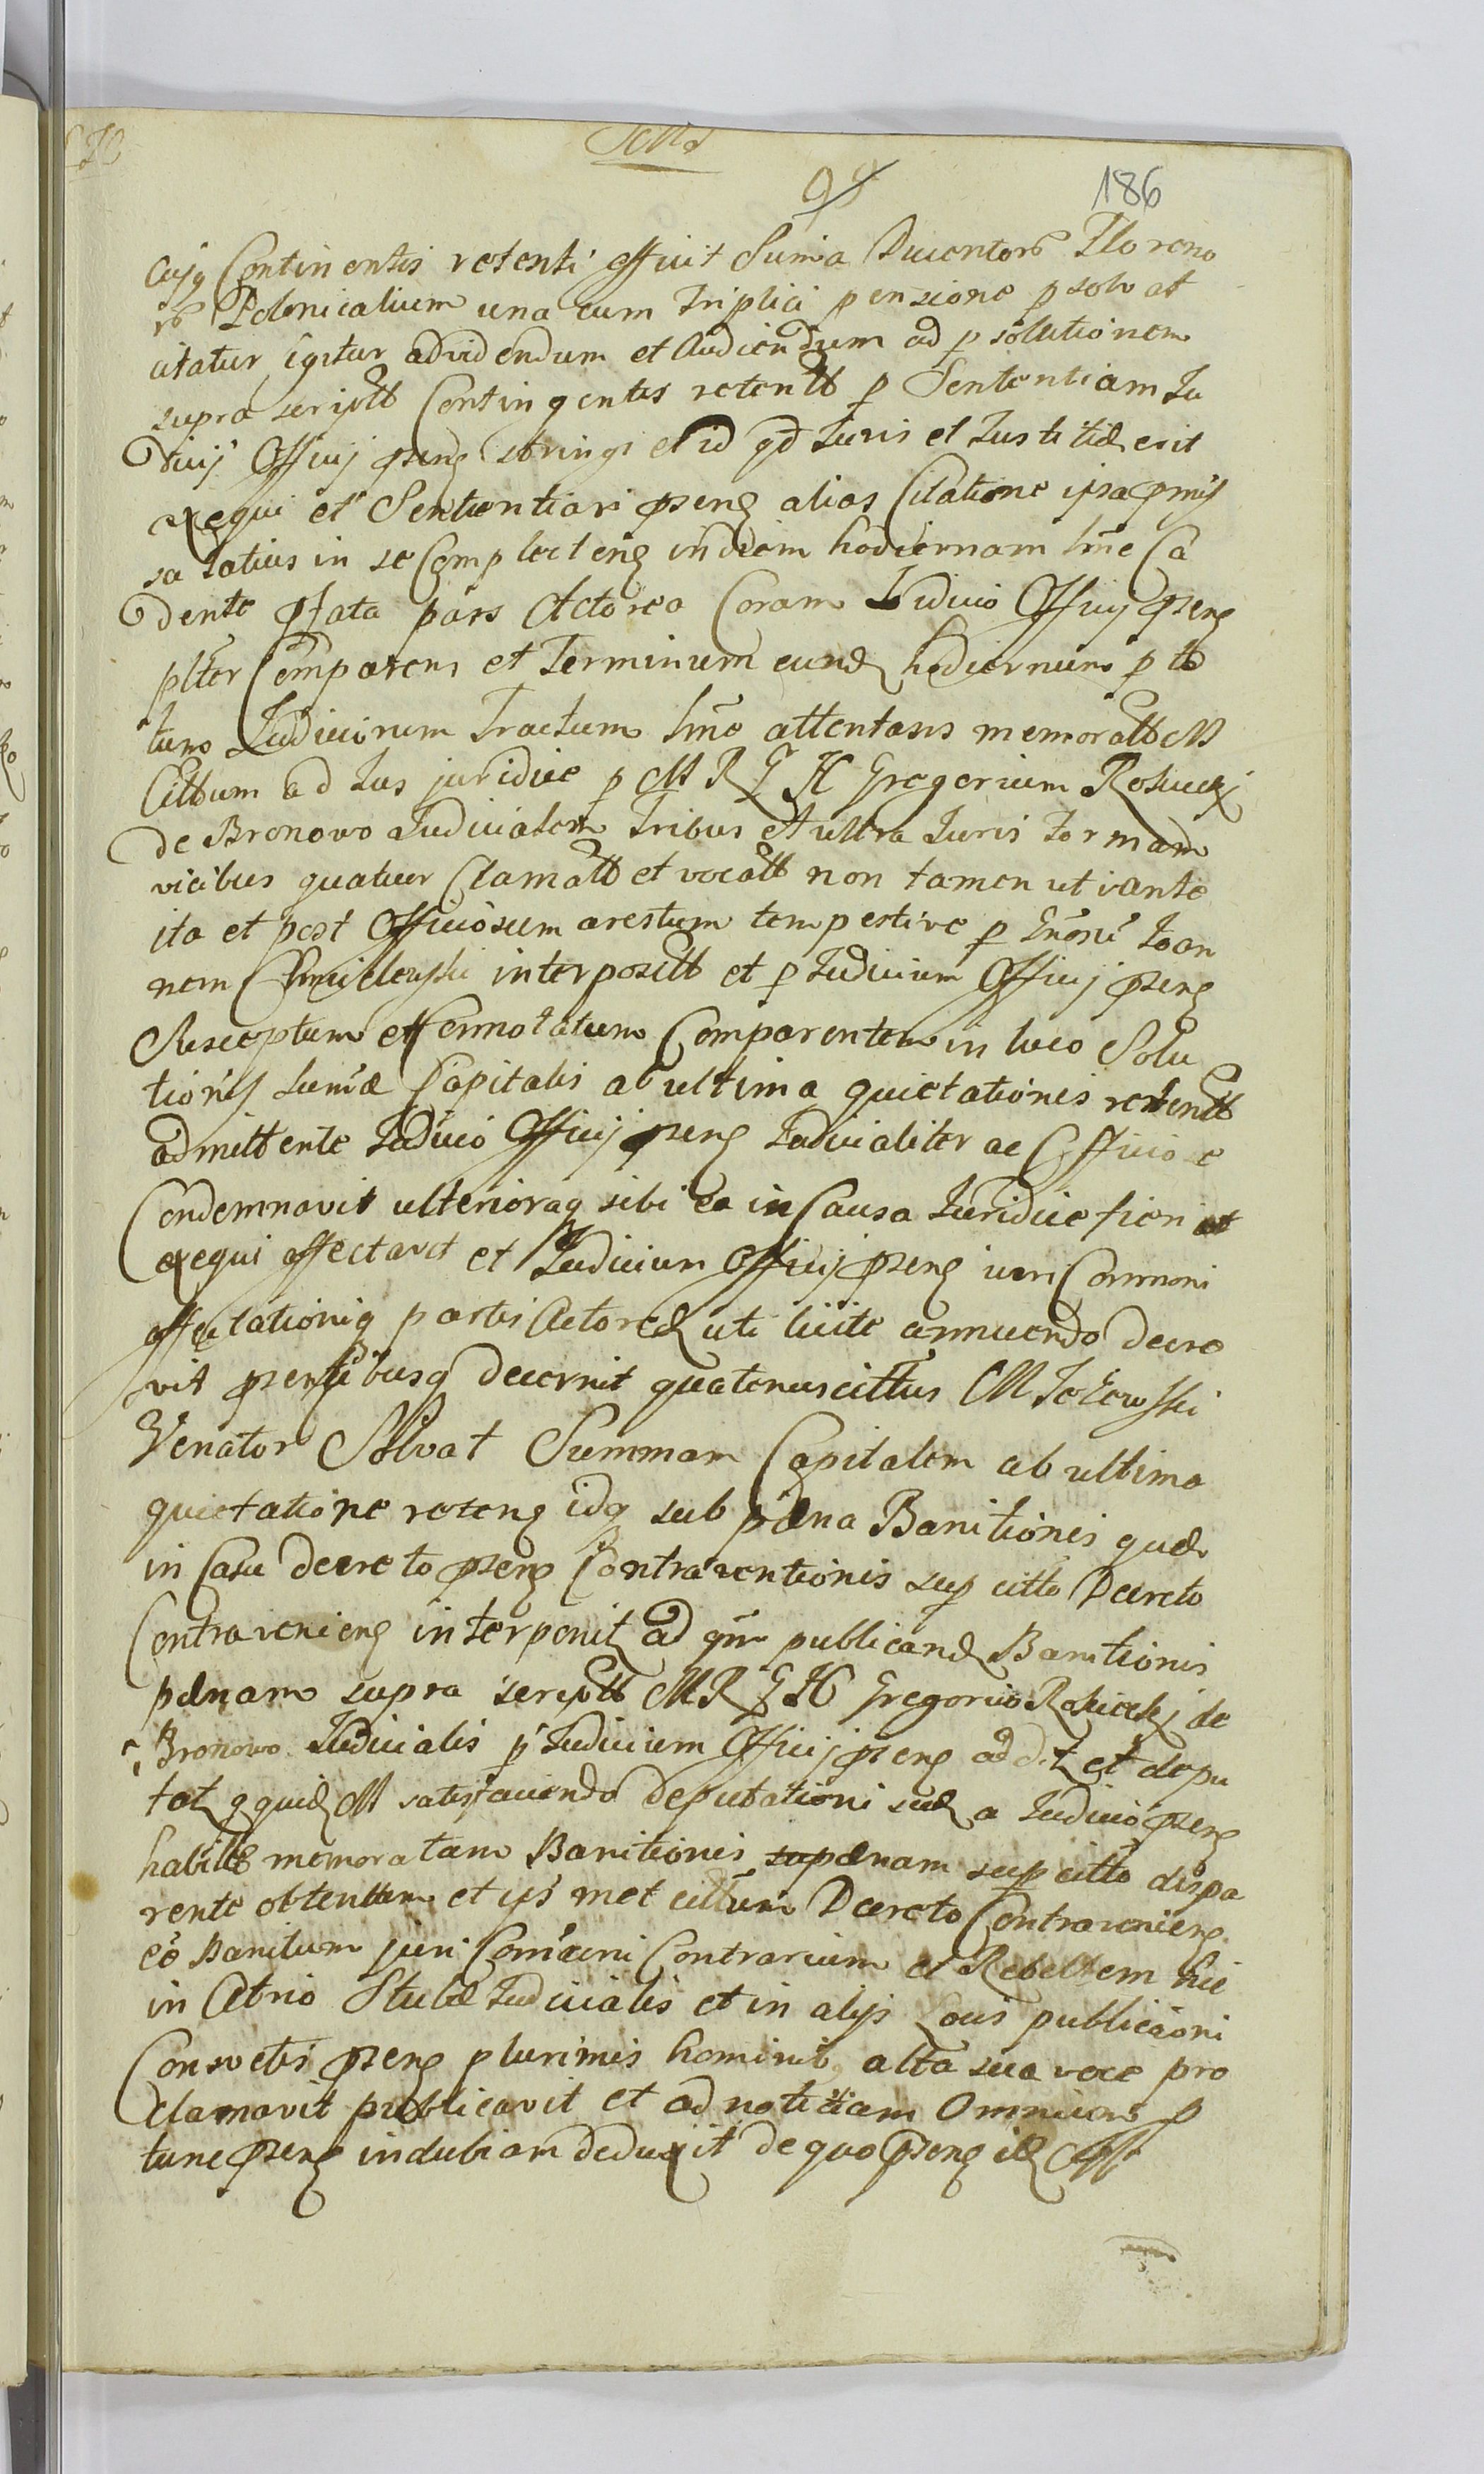 98
186
cujq Continentis retenti efficit Suma Ducentor Floreno
r Polonicalium una cum triplici pensione psolvat
citatur igitur ad videndum et Audiendum ad psolutionem
supra scriptt Contingentis retentt p Sententiam Ju
dicij Officij psens stringi et id qd Juris et Justitiæ erit
exequi et Sententiari psens alias Citatione ipsa pmis
sa latius in se Complectens in diem hodiernam hne Ca
dente pfata pars Actorea Coram Judicio Officij psens
plter Comparens et Terminum eund hodiernum p to
tum Judiciorum Tractum hne attentans memoratt M
Cittum ad Jus juridice p M R G H Gregorium Rosicki
de Bronovo Judicialem Tribus et ultra Juris formam
vicibus quatuor Clamatt et vocatt non tamen ut ante
ita et post Officiosum arestum tempestive p Gnosu Joan
nem Chmielewski interposítt et p Judicium Officij psens
Susceptum et Connotatum Comparentem in luco Solu
tionis sumæ Capitalis ab ultima quietationis retentt
admittente Judicio Officij psens Judicialiter ac Officiose
Condemnavit ulterioraq sibi ea in Causa Juridice fieri et
exequi affectavit et Judicium Officij psens juri Communi
affectationiq partis Actoreæ uti licite annuendo decre
vit psentibusq decernit quatenus cittus M
Venator Solvat Summam Capitalem ab ultima
quietatione retens idq sub pæna Banitionis quæ
in Casu decreto psens Contraventionis sup citto Decreto
Contraveniens interponit ad qm publicand Banitionis
pænam supra scriptt M R G H Gregorio Rosicki de
Bronovo Judicialis p Judicium Officij psens addit et depu
tat qquid M satisfaciendo deputationi suæ a Judicio psens
habittæ memoratam Banitionis pænam sup citto dispa
rente obtenttam et ijs met cittum Decreto Contraveniens
eo Banitum juri Comuni Contrarium et Rebellem hic
in Atrio Stubæ Judicialis et in alijs Locis publicaoni
Consvetis psens plurimis hominib alta sua voce pro
clamavit publicavit et ad notitiam Omnium p
tunc psens indubiam deduxit de quo psens id Off